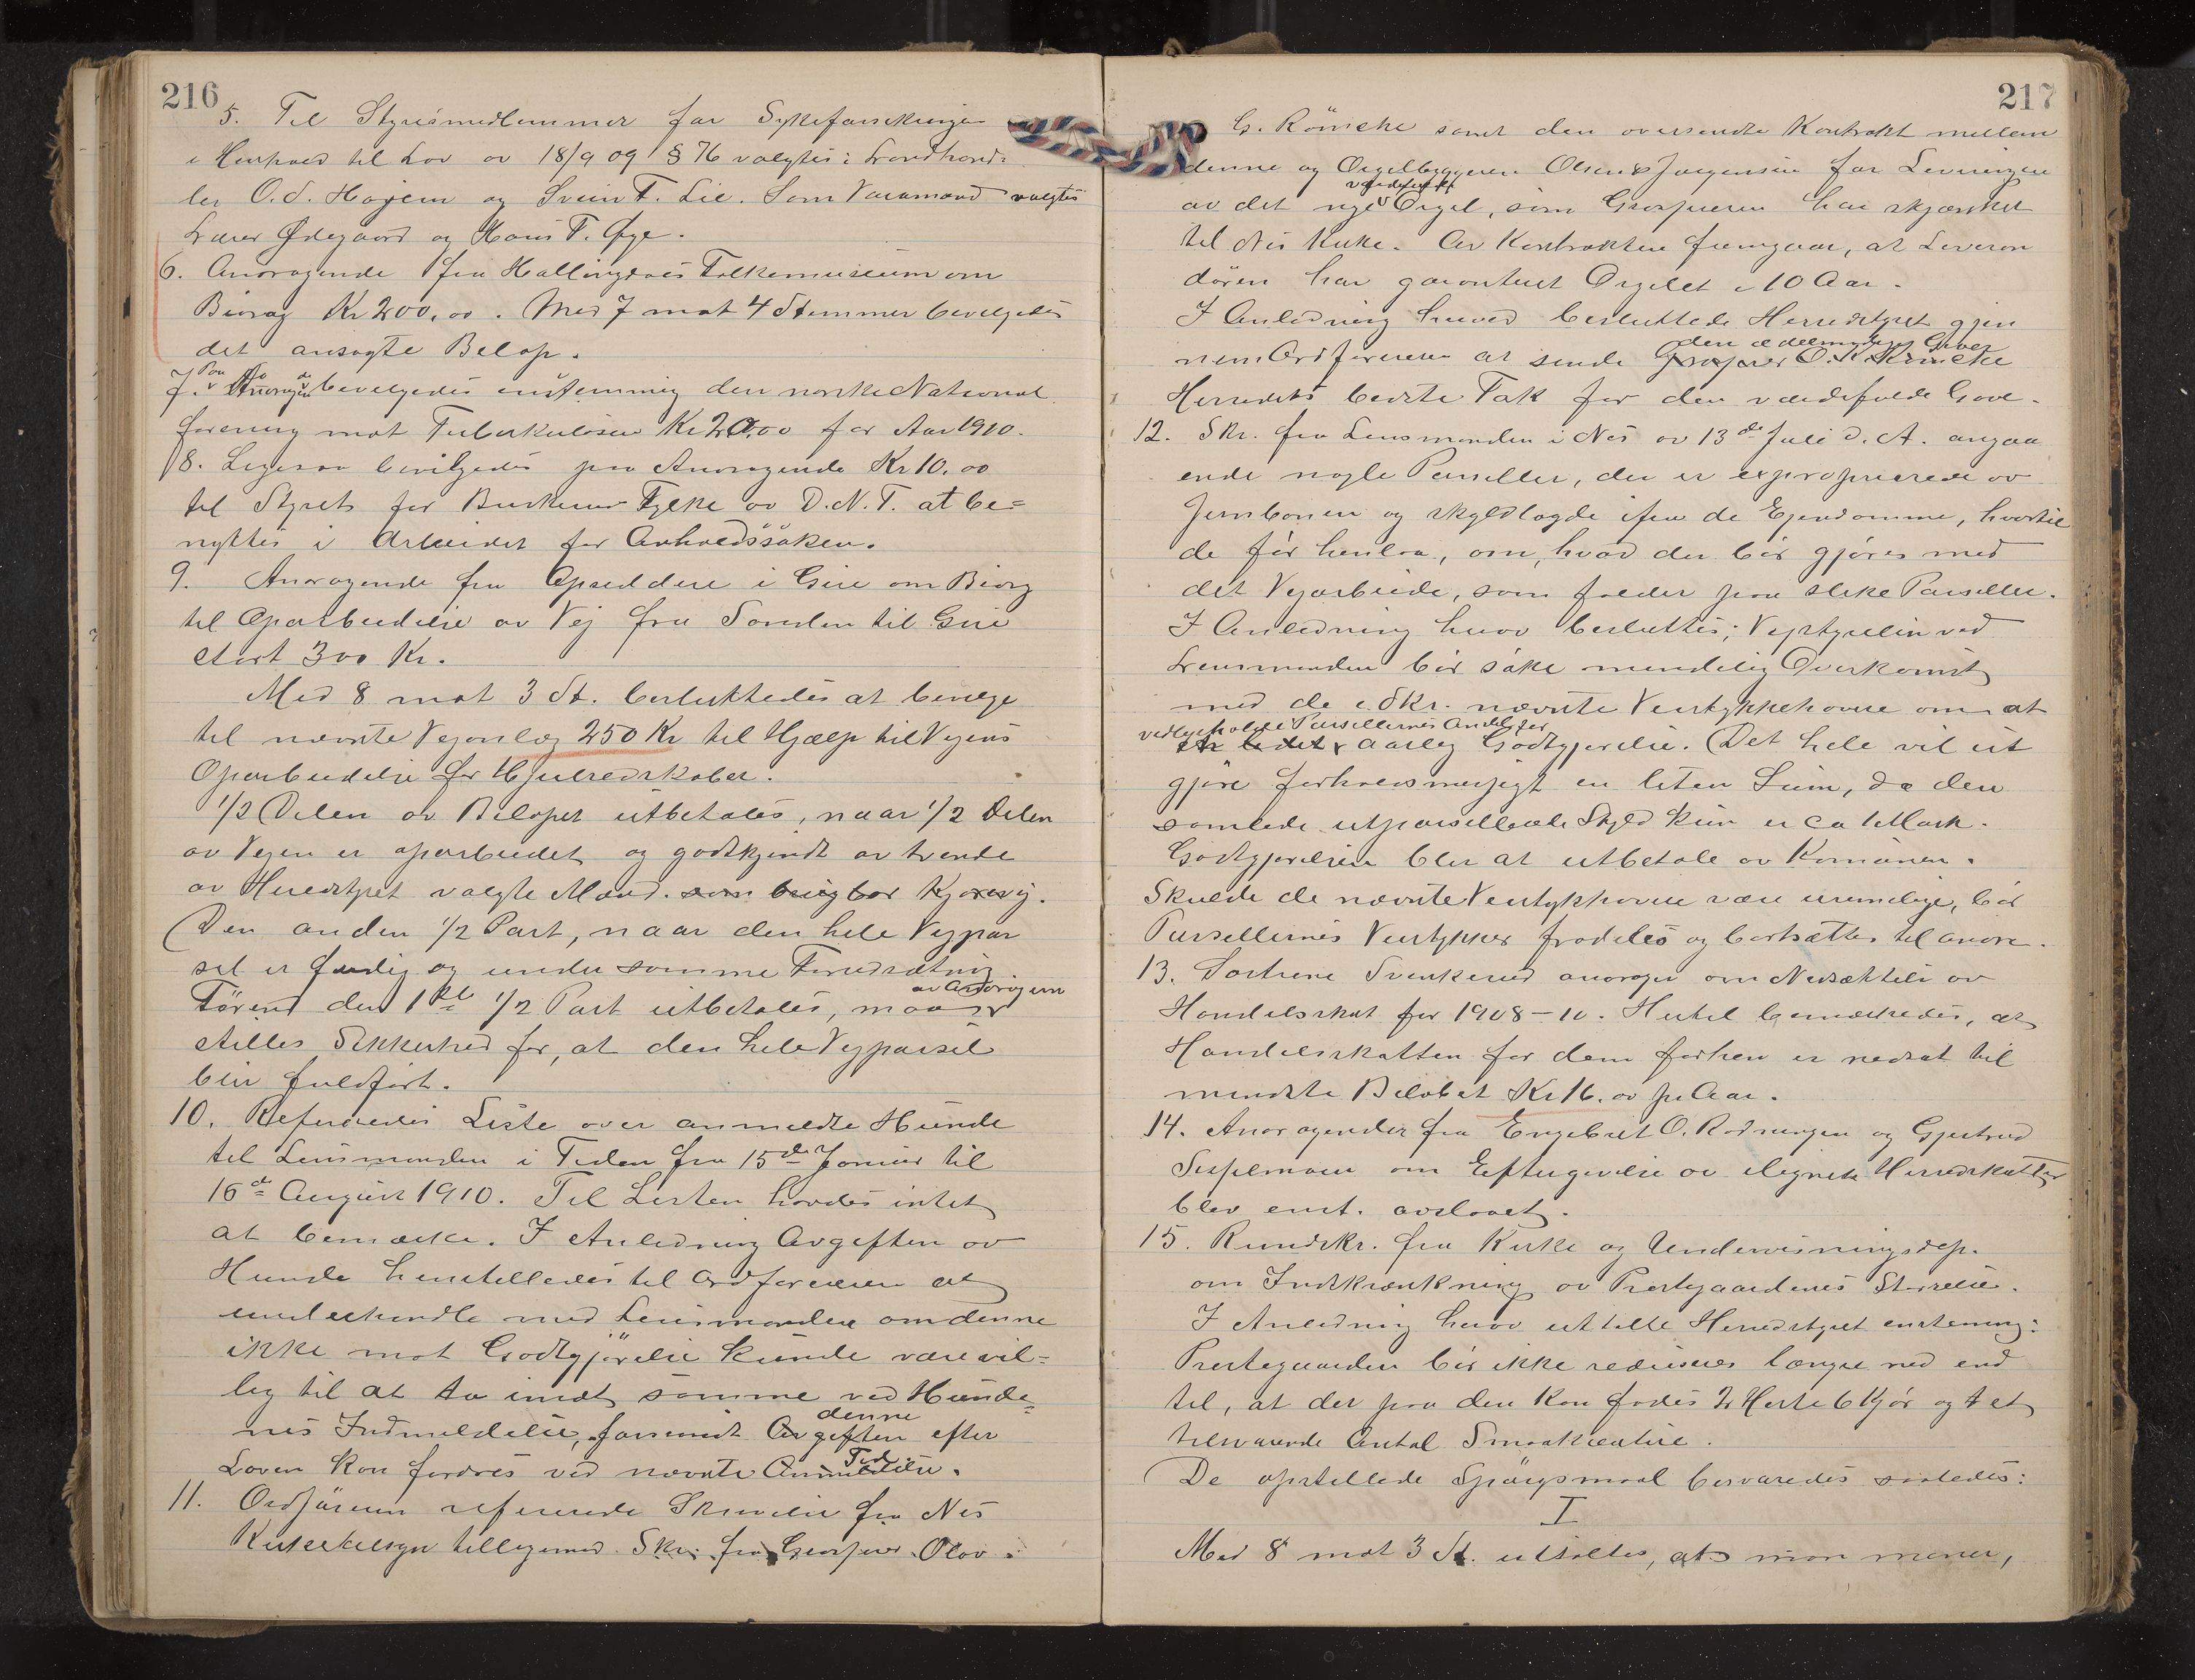 216
5. Til Styresmedlemmer for Sykeforsikringen
i Henhold til Lov av 18/9 09 § 76 valgtes: Landhand-
ler O. S. Hagem og Svein T. Lie. Som Varamænd valgtes
Lærer Ødegaard og Hans T. Øye.
6. Andragende fra Hallingdals Folkemuseum om
Bidrag Kr 200,00. Med 7 mot 4 Stemmer bevilgedes
det ansøgte Beløp.
7. Paa bevilgedes enstemmig den norske National
forening mot Tuberkulosen Kr 20,00 for Aar 1910.
8. Ligesaa bevilgedes paa Andragende Kr 10.00
til Styret for Buskerud Fylke av D.N.T. at be=
nyttes i Arbeidet for Avholdssaken.
9. Andragende fra Opsiddere i Gire om Bidrag
til Oparbeidelse av Vej fra til Gire
stort 300 Kr.
Med 8 mot 3 St. besluttedes at bevilge
til nævnte Vejanlæg 250 Kr til Hjælp til Vejens
Oparbeidelse for Hjulredskaber.
1/2 Delen av Beløpet utbetales, naar 1/2 Delen
av Vejen er oparbeidet og godkjendt av tvende
av Herredstyret valgte Mænd. som brugbar Kjørevej.
Den anden 1/2 Part, naar den hele Vejpar
sel er færdig og under samme Forudsætning.
Førend den 1ste 1/2 Part utbetales, maa av Andragerne
stilles Sikkerhed for, at den hele Vejparsel
blir fuldført.
10. Refereredes Liste over anmeldte Hunde
til Lensmanden i Tiden fra 15de Januar til
16de August 1910. Til Listen havdes intet
at bemærke. I Anledning Avgiften av
Hunde henstilledes til Ordføreren at
underhandle med Lensmanden om denne
ikke mot Godtgjørelse kunde være vil=
lig til at ta imot samme ved Hunde=
nes Indmeldelse, forsaavidt denne Avgiften efter
Loven kan fordres ved nævnte Tid.
11. Ordføreren refererede Skrivelse fra Nes
Kirketilsyn tillikemed Skr. fra Grosserer Olav
217
G. Römcke samt den oversendte Kontrakt mellem
denne og Orgelbyggeren Olsen & Jørgensen for Leveringen
av det nye værdifulde Orgel, som Grossereren har skjænket
til Nes Kirke. Av Kontrakten fremgaar, at Leveran
døren har garanteret Orgelet i 10 Aar.
I Anledning herved besluttede Herredstyret gjen
nem Ordføreren at sende den ædelmodige Giver Grosserer O. K. Römcke
Herredets bedste Tak for den værdifulde Gave.
12. Skr. fra Lensmanden i Nes av 13de Juli d. A. angaa
ende nogle Parseller, der er exproprierede av
Jernbanen og skyldlagde ifra de Ejendomme, hvortil
de før henlaa, om, hvad der bør gjøres med
det Vejarbeide, som falder paa slike Parseller.
I Anledning herav besluttes; Vejstyrelsen ved
Lensmanden bør søke mindelig Overkomst
med de i Skr. nævnte Veistykkehavere om at
vedlikeholde Parsellernes Andel for aarlig Godtgjørelse. (Det hele vil ut
gjøre forholdsmæssigt en liten Sum, da den
samlede utparsellerede Skyld kun er ca 1 Mark.
Godtgjørelsen blir at utbetale av Komunen.
Skulde de nævnte Veistykhavere være uvillige, bør
Parsellernes Veistykker fradeles og bortsættes til andre.
13. Svenkerud andrager om Nedsættelse av
Handelsskat for 1908–10. Hertil bemerkedes, at
Handelsskatten for dem forhen er nedsat til
mindste Beløbet Kr 16.00 pr Aar.
14. Andragender fra Engebret O. Rodningen og Gjertrud
om Eftergivelse av ilignede Herredskatter
blev enst. avslaaet.
15. Rundskr. fra Kirke og Undervisningsdep.
om Indskrænkning av Prestegaardenes Størrelse.
I Anledning herav uttalte Herredstyret enstemmig:
Prestegaarden bør ikke reduseres længre ned end
til, at der paa den kan fødes 2 Heste 6 Kjør og et
tilsvarende Antal Smaakreature.
De opstillede Spørgsmaal besvaredes saaledes:
I
Med 8 mot 3 St. uttaltes, at man mener,